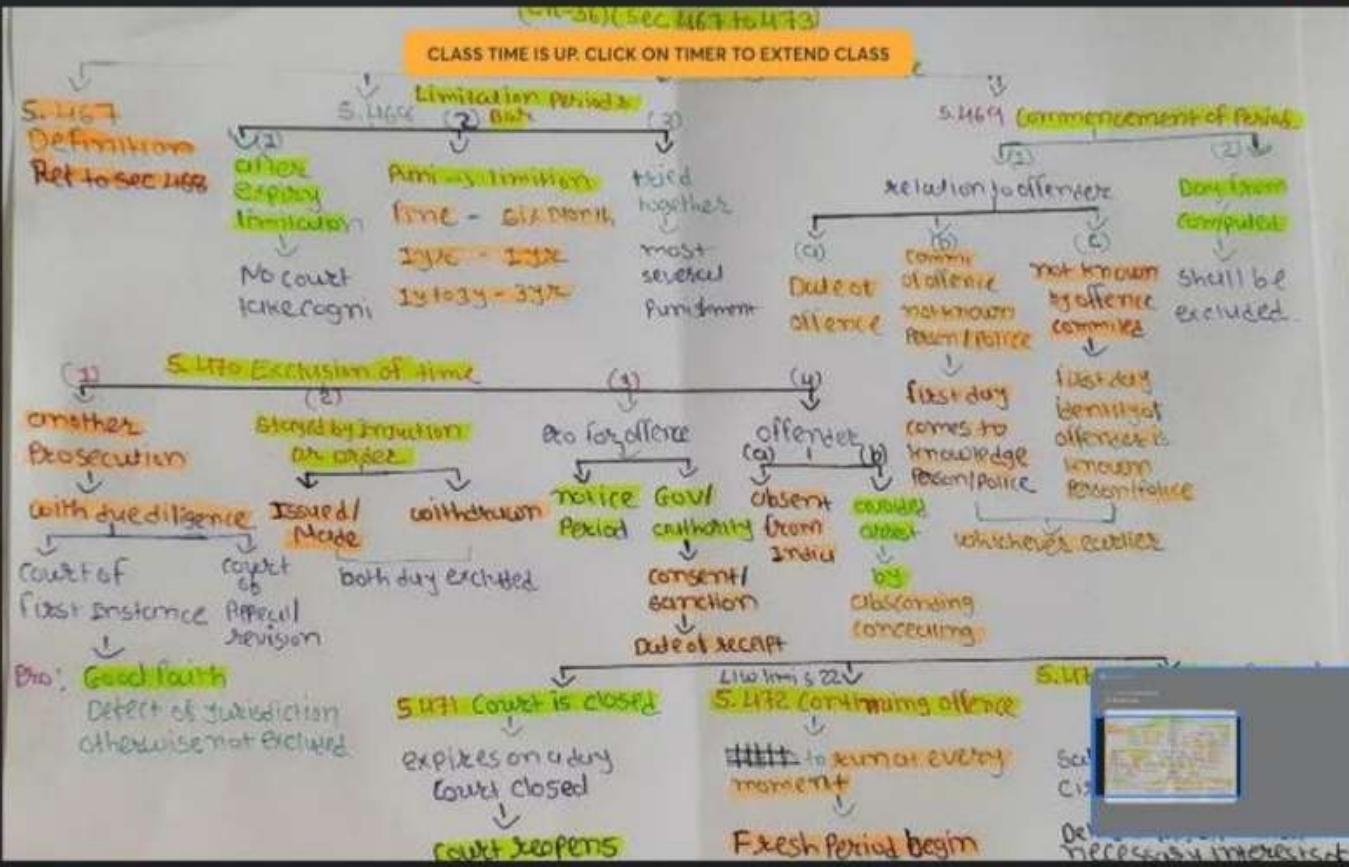 (Ch-36)(Sec 467 to 473)
CLASS TIME IS UP. CLICK ON TIMER TO EXTEND CLASS
S. 467
Definition
Ref to sec 468
S.468
Limitation Periods
Bar
(1)
after
expiry
limitation
No court
take cogni
(2)
limition
fine - six Month
1yr - 1yr
1y to 3y - 3yr
(3)
tried
together
most
several
Punishment
S.469 Commencement of Period
(1)
relation to offender
(a)
Date of
offence
(b)
commi
of offence
not known
Person/Police
first day
comes to
knowledge
Person/police
(c)
not known
by offence
commited
first day
identity of
offender is
known
Person/Police
whichever earlier
(2)
Day from
computed
shall be
excluded.
S. 470 Exclusion of time
(1)
another
Prosecution
with due diligence
court of
first Instance
court
of
Appeal/
revision
Pro: Good faith
Defect of Jurisdiction
otherwise not excluded
(2)
Stayed by Injuction
or order
Issued/
Made
withdrawn
both day excluded
(3)
Pro for offence
notice
Period
Gov/
authority
consent/
sanction
Date of receipt
(4)
offender
(a)
absent
from
India
(b)
avoided
arrest
by
absconding
concealing
S 471 Court is closed
expires on a day
Court closed
Court reopens
S. 472 Continuing offence
to run at every
moment
Fresh Period begin
S.47